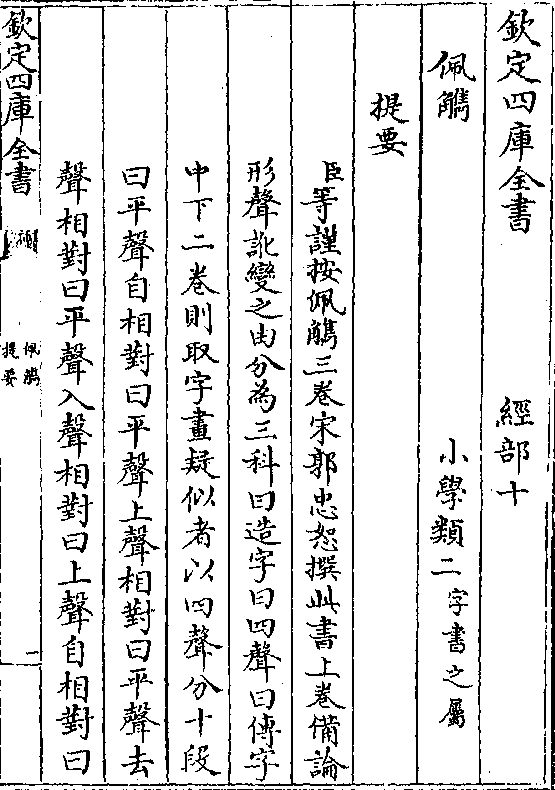 欽定四庫全書 經部十
佩觿 小學類二字書之屬
提要
臣等謹按佩觿三卷宋郭忠恕撰此書上卷備論
形聲訛變之由分為三科曰造字曰四聲曰傳字
中下二卷則取字畫疑似者以四聲分十段
曰平聲自相對曰平聲上聲相對曰平聲去
聲相對曰平聲入聲相對曰上聲自相對曰
欽定四庫全書
佩觿
提要
一